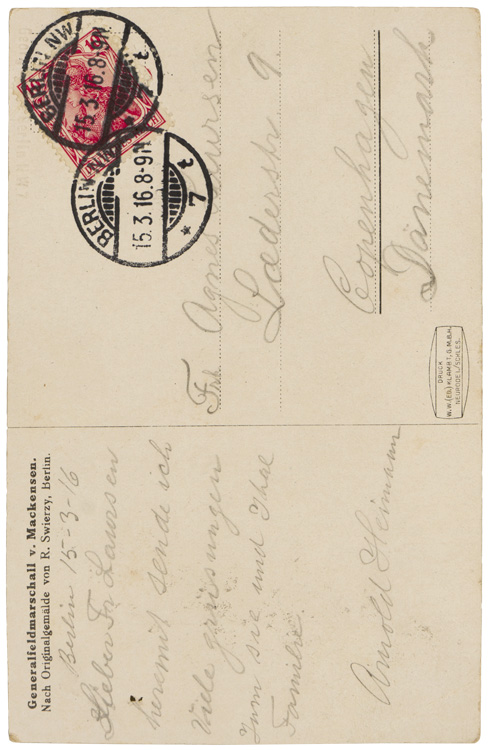 Generalfeldmarschall v. Mackensen.
Nach Originalgemälde von R. Swierzy, Berlin.
Berlin 15-3-16
Lieber Fr Laursen
heremit sende ich
Viele grüsungen
Zum sie und Ihre
Familie
Arnold Heimann
BERLIN NW
15.3.16.8-9N
* 7 t
BERLIN NW
15.3.16.8-9N
* 7 t
Fr Agnes Laursen
Laederstr 9
Copenhagen
Dänemark
DRUCK
W.W.(ED.) KLAMBT, G.M.B.H.
NEURODE I./SCHLES.